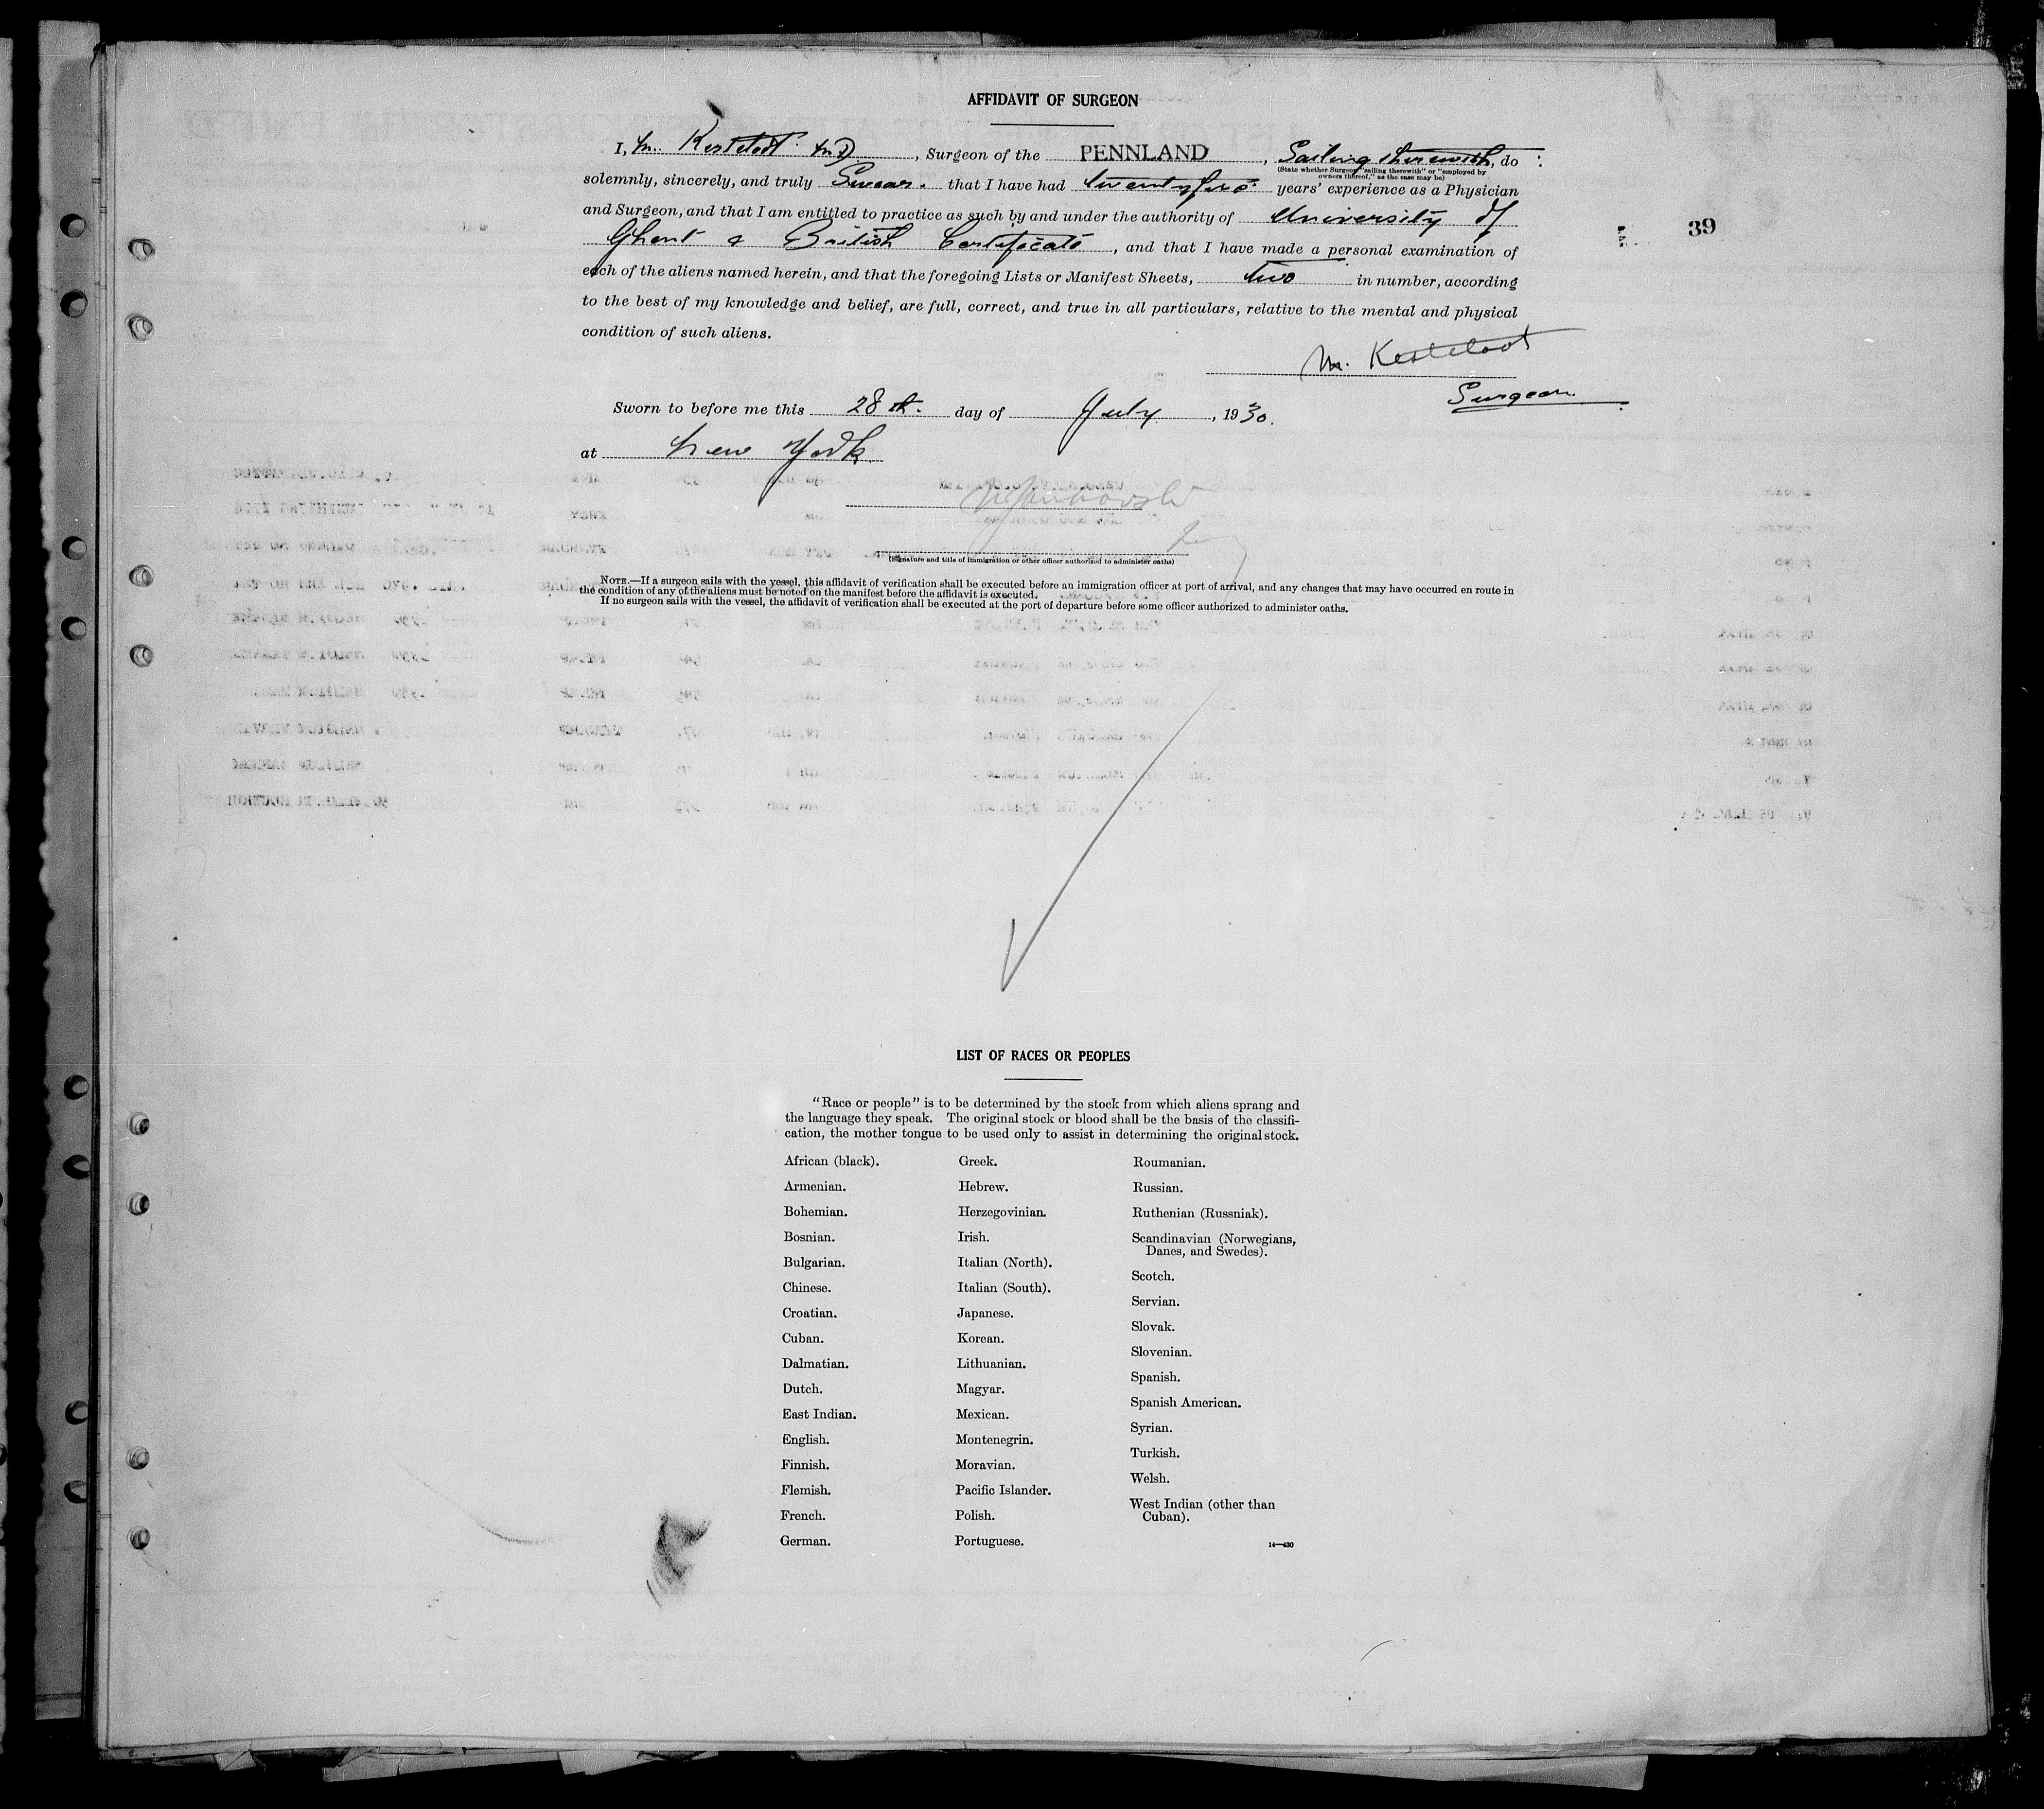 AFFIDAVIT OF SURGEON
I, M. Kesteloot M.D., Surgeon of the PENNLAND, Sailing therewith, do
(State whether Surgeon "sailing therewith" or "employed by
owners thereof," as the case may be)
solemnly, sincerely, and truly Swear. that I have had years' experience as a Physician
and Surgeon, and that I am entitled to practice as such by and under the authority of University of
Ghent & British Certificate, and that I have made a personal examination of
each of the aliens named herein, and that the foregoing Lists or Manifest Sheets, two in number, according
to the best of my knowledge and belief, are full, correct, and true in all particulars, relative to the mental and physical
condition of such aliens.
M. Kesteloot
Surgeon.
Sworn to before me this 28th. day of July, 1930.
at New York.
(Signature and title of immigration or other officer authorized to administer oaths)
NOTE.—If a surgeon sails with the vessel, this affidavit of verification shall be executed before an immigration officer at port of arrival, and any changes that may have occurred en route in
the condition of any of the aliens must be noted on the manifest before the affidavit is executed.
If no surgeon sails with the vessel, the affidavit of verification shall be executed at the port of departure before some officer authorized to administer oaths.
39
LIST OF RACES OR PEOPLES
"Race or people" is to be determined by the stock from which aliens sprang and
the language they speak. The original stock or blood shall be the basis of the classifi-
cation, the mother tongue to be used only to assist in determining the original stock.
African (black).
Armenian.
Bohemian.
Bosnian.
Bulgarian.
Chinese.
Croatian.
Cuban.
Dalmatian.
Dutch.
East Indian.
English.
Finnish.
Flemish.
French.
German.
Greek.
Hebrew.
Herzegovinian.
Irish.
Italian (North).
Italian (South).
Japanese.
Korean.
Lithuanian.
Magyar.
Mexican.
Montenegrin.
Moravian.
Pacific Islander.
Polish.
Portuguese.
Roumanian.
Russian.
Ruthenian (Russniak).
Scandinavian (Norwegians,
Danes, and Swedes).
Scotch.
Servian.
Slovak.
Slovenian.
Spanish.
Spanish American.
Syrian.
Turkish.
Welsh.
West Indian (other than
Cuban).
14—430